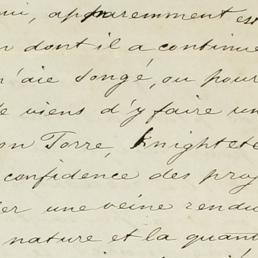 ni, apparemment est
n dont il a continue
n'aie songé, ou pour
le viens d'y faire un
on Torre, Knight et
confidence des prog
er une veine rendu
nature et la quant